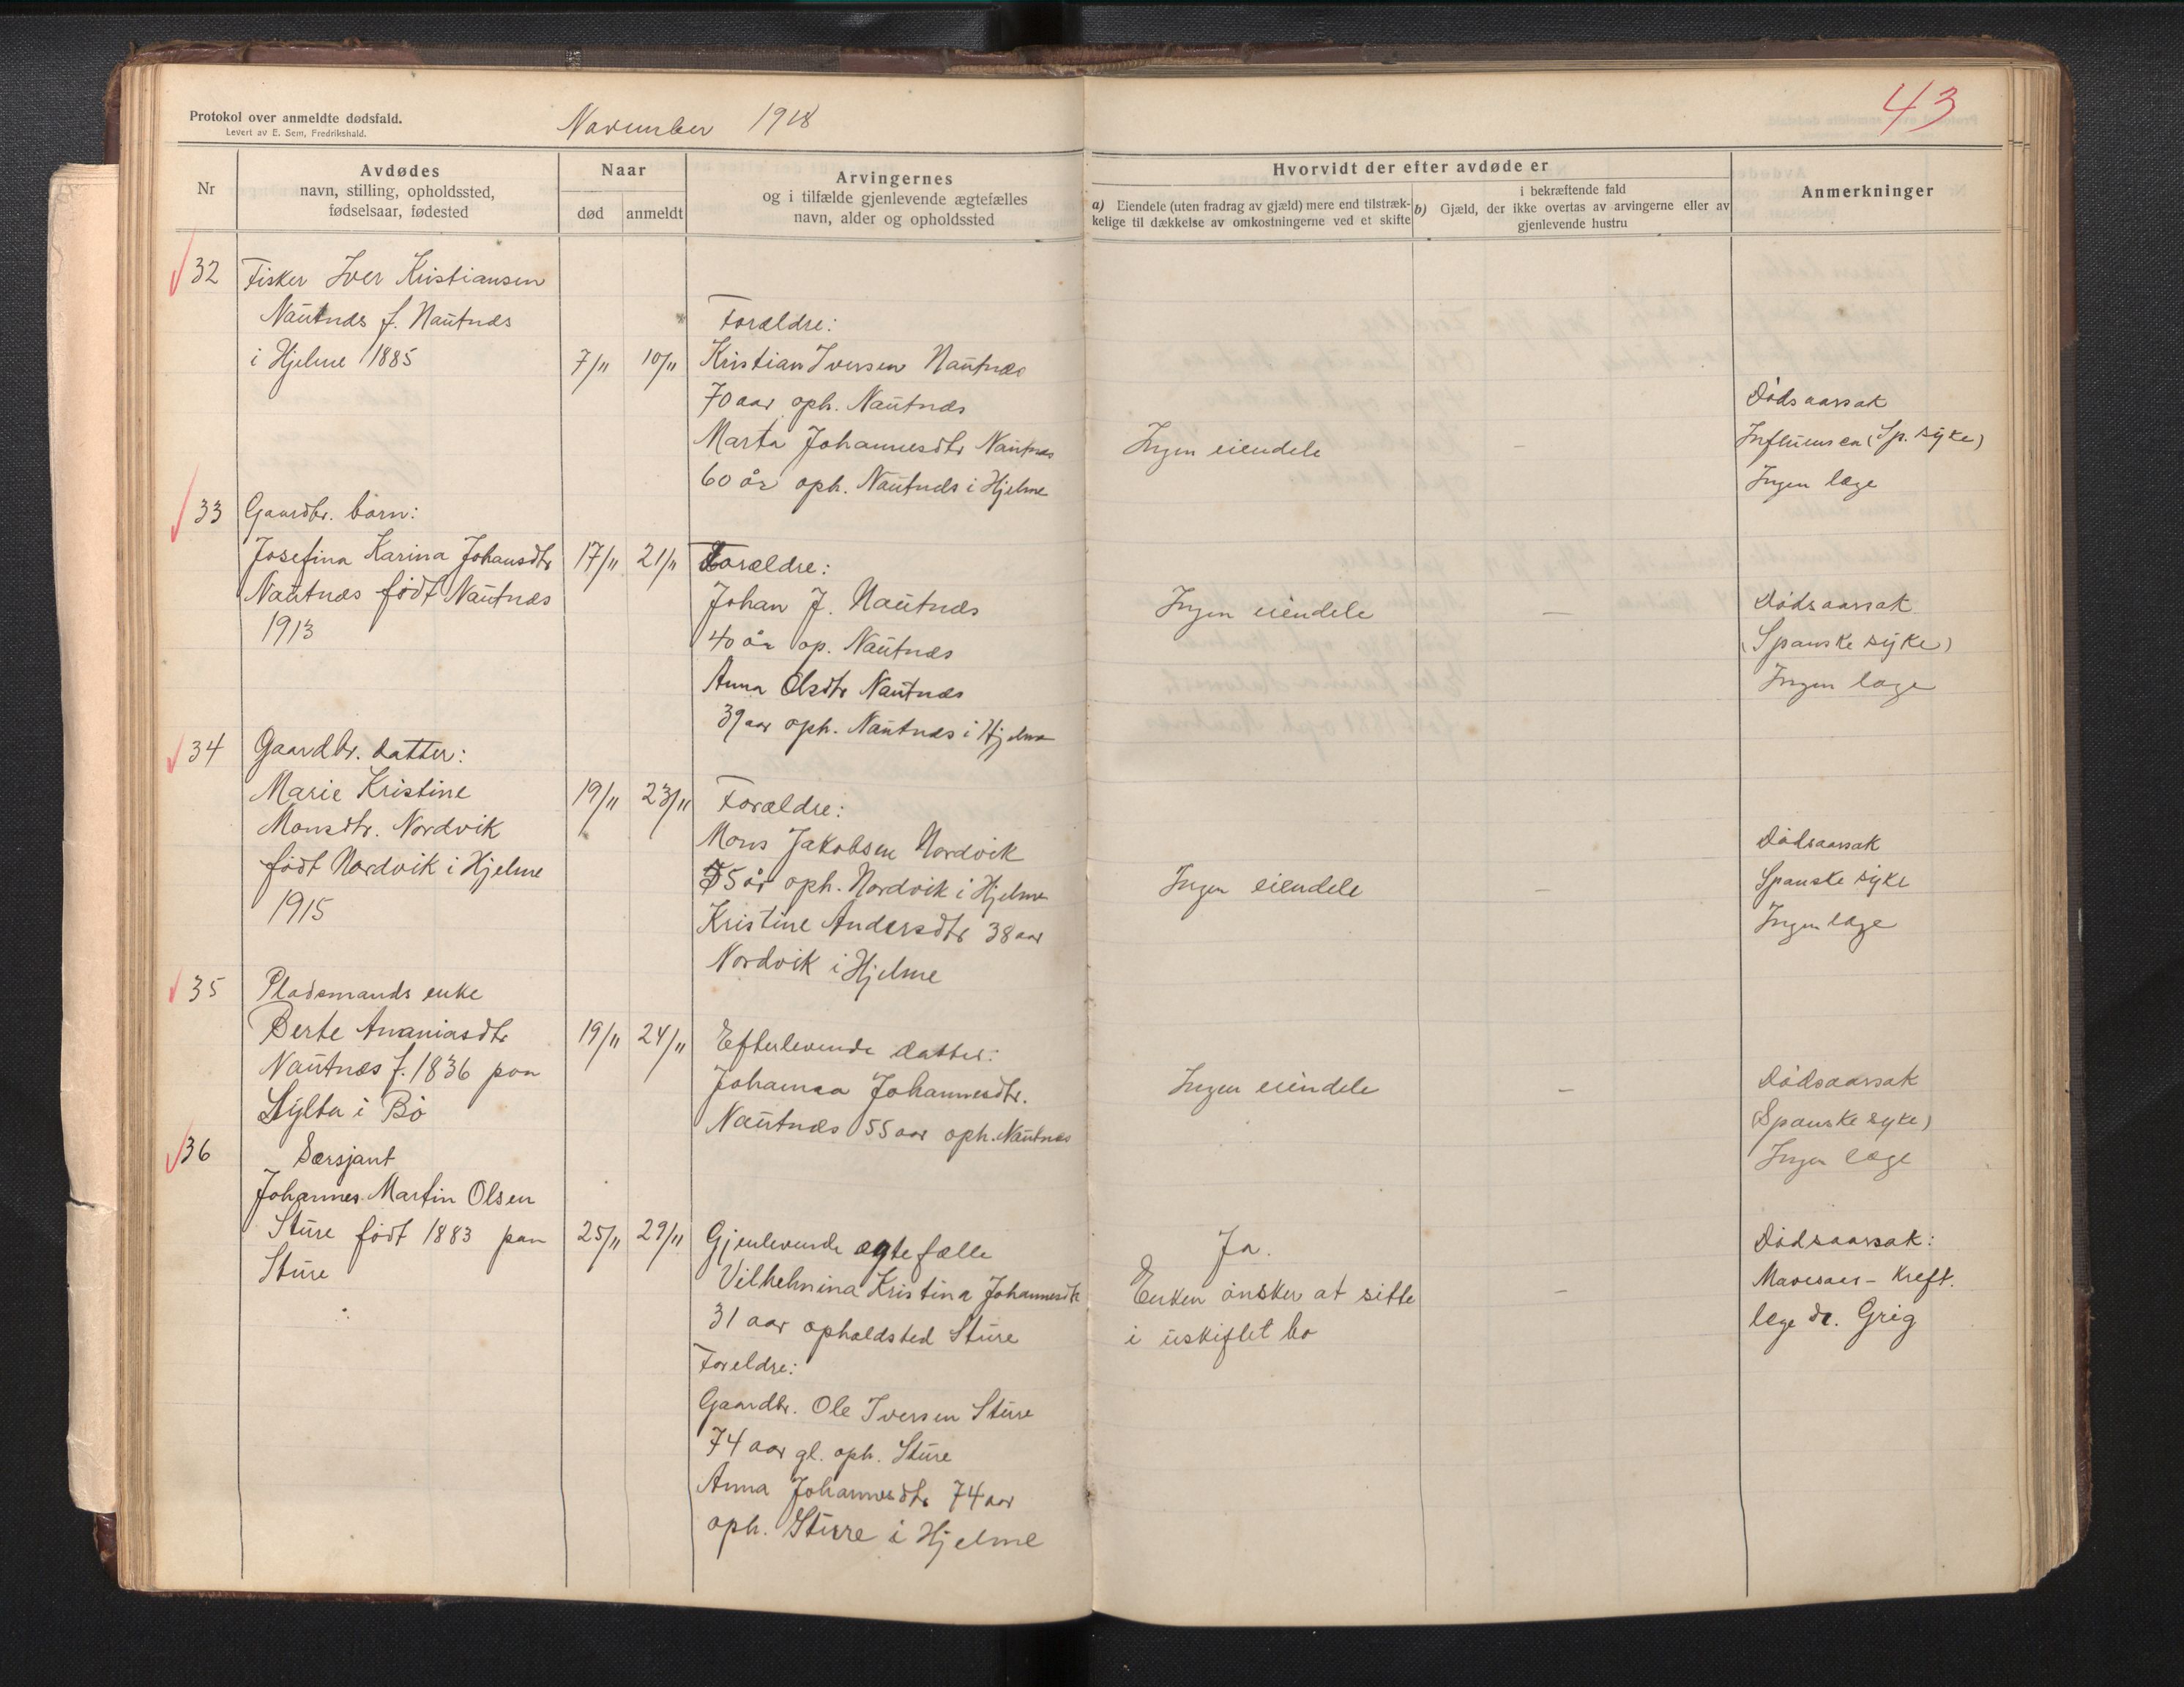 Protokol over anmeldte dødsfald.
Levert av E. Sem, Fredrikshald.
November 1918
43
Nr
Avdødes
navn, stilling, opholdssted,
fødselsaar, fødested
Naar
død
anmeldt
Arvingernes
og i tilfælde gjenlevende ægtefælles
navn, alder og opholdssted
Hvorvidt der efter avdøde er
a) Eiendele (uten fradrag av gjæld) mere end tilstræk-
kelige til dækkelse av omkostningerne ved et skifte
i bekræftende fald
b) Gjæld, der ikke overtas av arvingerne eller av
gjenlevende hustru
Anmerkninger
32
Fisker Iver Kristiansen
Nautnes f. Nautnes
i Hjelme 1885
7/11
10/11
Forældre:
Kristian Iversen Nautnes
70 aar oph. Nautnes
Marta Johannesdtr Nautnes
60 år oph. Nautnes i Hjelme
Ingen eiendele
-
Dødsaarsak
Influensa (Sp. syke)
Ingen læge
33
Gaardbr. barn:
Josefina Karina Johansdtr
Nautnes født Nautnes
1913
17/11
21/11
Forældre:
Johan J. Nautnes
40 år op. Nautnes
Anna Olsdtr Nautnes
39 aar oph. Nautnes i Hjelme
Ingen eiendele
-
Dødsaarsak
(Spanske syke)
Ingen læge
34
Gaardbr. datter:
Marie Kristine
Monsdtr. Nordvik
født Nordvik i Hjelme
1915
19/11
23/11
Forældre:
Mons Jakobsen Nordvik
35 år oph. Nordvik i Hjelme
Kristine Andersdtr 38 aar
Nordvik i Hjelme
Ingen eiendele
-
Dødsaarsak
Spanske syke
Ingen læge
35
Pladsmands enke
Berte Ananiasdtr
Nautnes f. 1836 paa
Sylta i Bø
19/11
24/11
Efterlevende datter:
Johanna Johannesdtr.
Nautnes 55 aar oph. Nautnes
Ingen eiendele
-
Dødsaarsak
(Spanske syke)
Ingen læge
36
Sersjant
Johannes Martin Olsen
Sture født 1883 paa
Sture
25/11
29/11
Gjenlevende ægtefælle
Vilhelmina Kristina Johannesdtr
31 aar opholdsted Sture
Foreldre:
Gaardbr. Ole Iversen Sture
74 aar gl. oph. Sture
Anna Johannesdtr 74 aar
oph. Sture i Hjelme
Ja.
Enken ønsker at sitte
i uskiftet bo
-
Dødsaarsak:
Mavesaar - Kreft.
læge dr. Grig